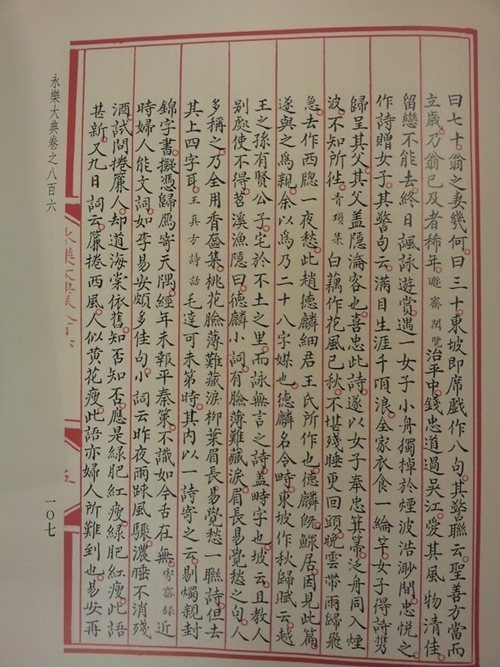 曰七十翁之妻幾何曰三十東坡即席戲作八句其警聯云聖善方當而
立歲乃翁已及者稀年遯齋閒覽治平中錢忠道過吳江愛其風物清佳
留戀不能去終日諷詠遊賞遇一女子小舟獨棹於煙波浩渺間忠悅之
作詩贈女子其警句云滿目生涯千頃浪全家衣食一綸竿女子得詩携
歸呈其父其父盖隱淪客也喜忠此詩遂以女子奉忠箕箒泛舟同入煙
波不知所徃青瑣集白藕作花風已秋不堪殘睡更回頭晚雲帶雨歸飛
急去作西牕一夜愁此趙德麟細君王氏所作也德麟旣鰥居因見此篇
遂與之為親余以為乃二十八字媒也德麟名令畤東坡作秋歸賦云越
王之孫有賢公子宅於不土之里而詠無言之詩盖畤字也坡云且教人
别處使不得苕溪漁隱曰德麟小詞有臉薄難藏淚眉長易覺愁之句人
多稱之乃全用香奩集桃花臉薄難藏淚柳葉眉長易覺愁一聯詩但去
其上四字耳王直方詩話毛達可未第時其内以一詩寄之云剔燭親封
錦字書擬憑歸鴈寄天隅經年未報平秦策不識如今舌在無寄齋録近
時婦人能文詞如李易安頗多佳句小詞云昨夜雨踈風驟濃睡不消殘
酒試問捲簾人却道海棠依舊知否知否應是緑肥紅瘦緑肥紅瘦此語
甚新又九日詞云簾捲西風人似黄花瘦此語亦婦人所難到也易安再
永樂大典卷之八百六
一〇七